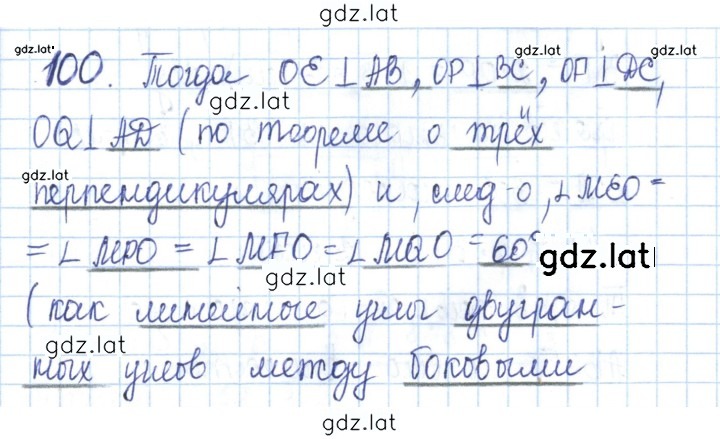 gdz.lat
gdz.lat gdz.lat gdz.lat
100. Тогда OE ⊥ AB, OP ⊥ BC, OF ⊥ DC,
gdz.lat
OQ ⊥ AD (по теореме о трёх
gdz.lat
перпендикулярах) и, след-о, ∠MEO =
= ∠MPO = ∠MFO = ∠MQO = 60°
gdz.lat
(как линейные углы двугран-
gdz.lat
ных углов между боковыми
gdz.lat